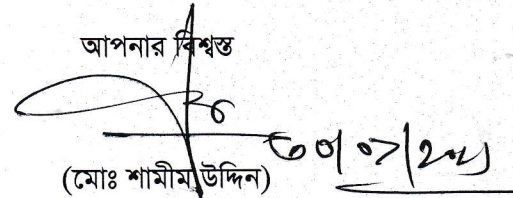 আপনার বিশ্বস্ত
(মোঃ শামীম উদ্দিন)